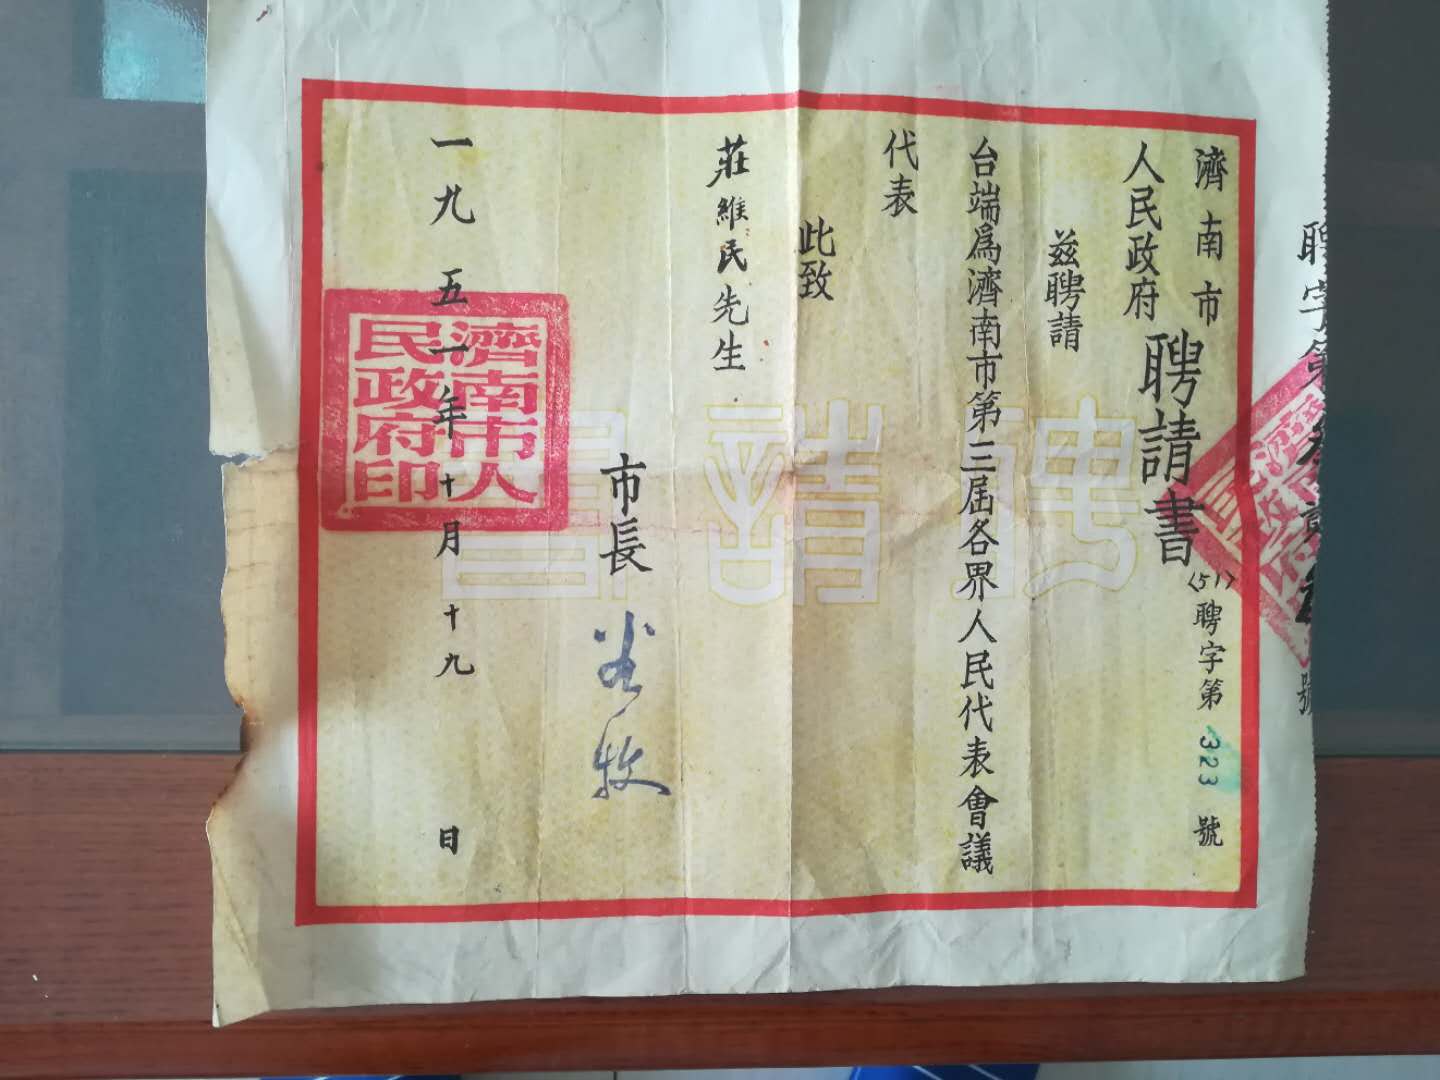 聘字第叁
號
濟南市
人民政府
聘請書
(51)聘字第323號
兹聘請
台端爲濟南市第三屆各界人民代表會議
代表
此致
莊維民先生
市長
一九五一年十月十九日
聘請書
濟南市人
民政府印